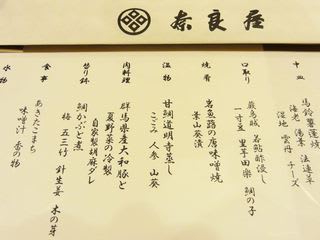 奈良屋
中皿
馬鈴薯蓮焼
海老 湯葉 法連草
湿地 雲丹 チーズ
口取り
蕨烏賊 若鮎酢浸し
一寸豆 里芋田楽 鯛の子
焼肴
岩魚蕗の唐味噌焼
葉山葵漬
温物
甘鯛道明寺蒸し
こごみ 人参 山葵
肉料理
群馬県産大和豚と
夏野菜の冷製
自家製胡麻ダレ
替り鉢
鯛かぶと煮
梅 五三竹 針生姜 木の芽
食事
あきたこまち
味噌汁 香の物
水物